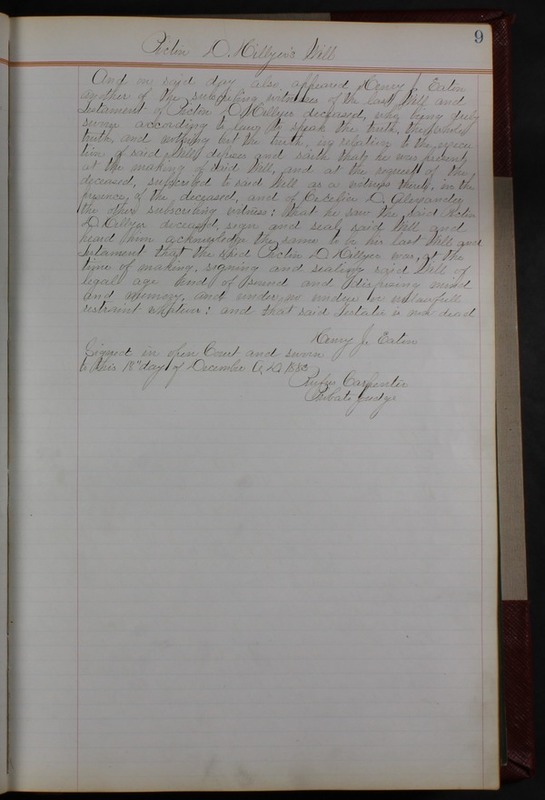 9
D. Hillyer's Will
And on said day also appeared Henry J. Eaton
another of the subscribing witnesses of the last Will and
testament of D Hillyer deceased, who being duly
sworn according to law to speak the truth, the whole
truth, and nothing but the truth, in relation to the execu
tion of said Will, deposes and saith that he was present
at the making of said Will, and at the request of the
deceased, subscribed to said Will as a witness thereto, in the
presence of the deceased, and of D. Alexander
the other subscribing witness; that he saw the said
D Hillyer deceased, sign and seal said Will and
heard him acknowledge the same to be his last Will and
testament that the said D Hillyer was, at the
time of making, signing and sealing said Will of
legal age and of sound and disposing mind
and memory, and under no undue or unlawfull
restraint whatever; and that said testator is now dead
Henry J. Eaton
Signed in open Court and sworn
to this 18th day of December A D
Rufus Carpenter
Probate Judge